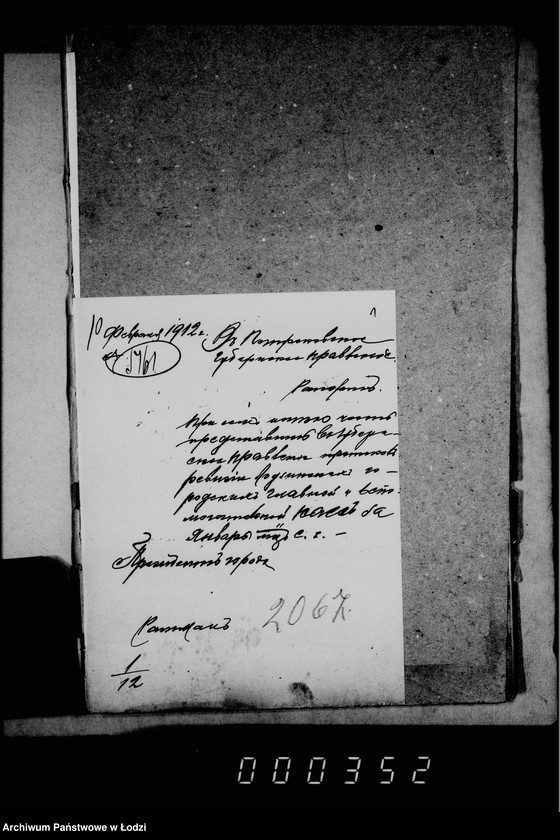 10 Февраля 1912 г.
№ 3761
1
Въ Петроковское
Губернское Правленіе
Рапортъ.
При семъ имѣю честь
представить въ Губерн-
ское Правленіе протоколъ
ревизіи Лодзинскихъ го-
родскихъ главной и вспо-
могательной кассъ за
Январь мѣс. с. г. —
Президентъ города
Ратманъ
2067.
1/12
000352
Archiwum Państwowe w Łodzi